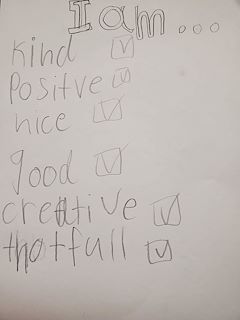 I am...
kind
Positve
nice
good
creative
thotfull